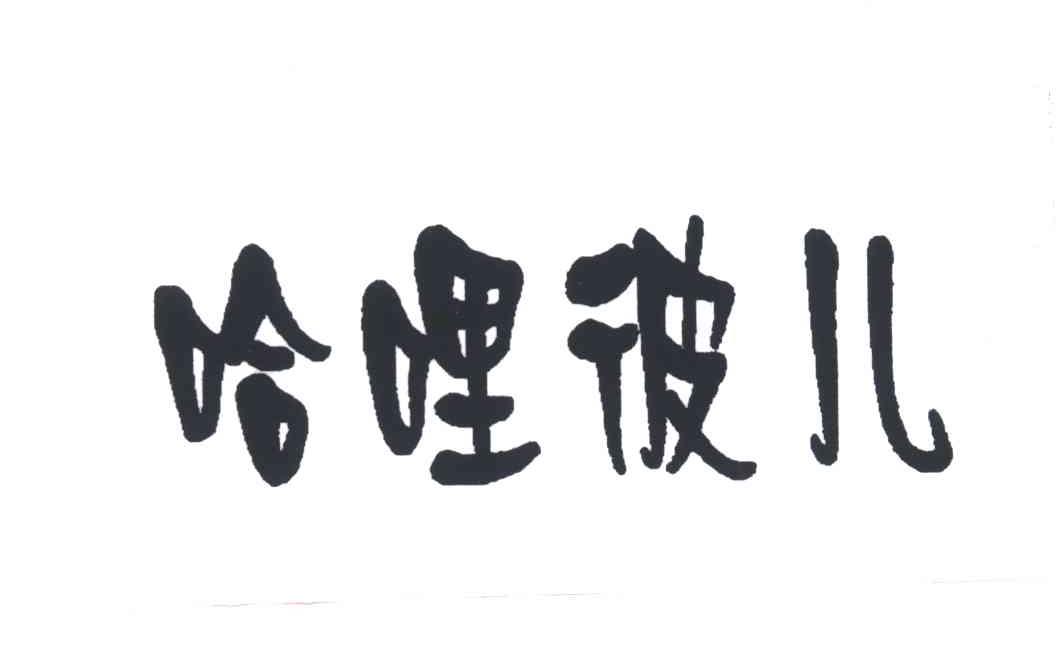 哈哩彼儿